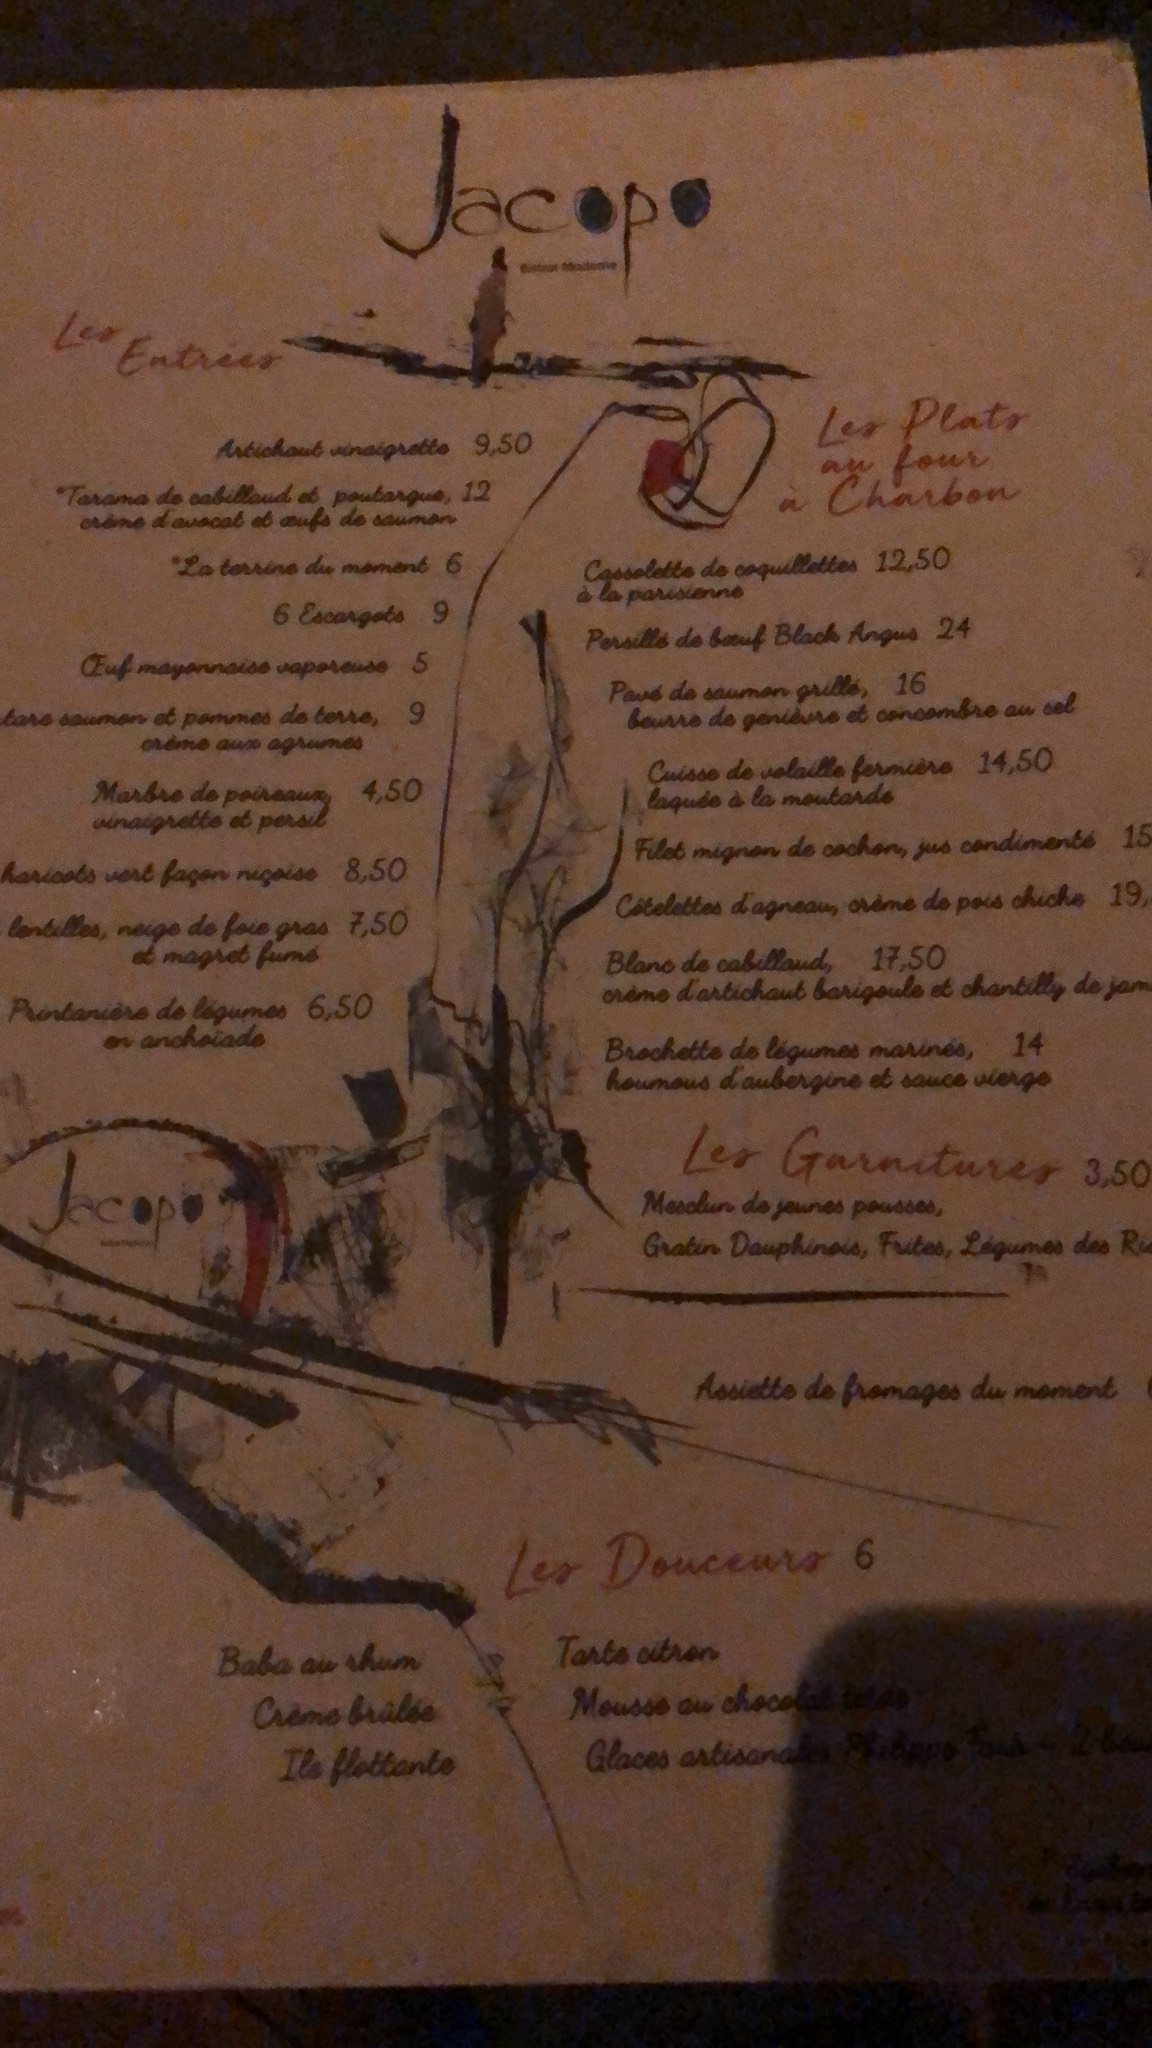 Jacopo
Bistrot Moderne
Les
Entrées
Artichaut vinaigrette 9,50
*Tarama de cabillaud et poutargue, 12
crème d'avocat et œufs de saumon
*La terrine du moment 6
6 Escargots 9
Œuf mayonnaise vaporeuse 5
saumon et pommes de terre, 9
crème aux agrumes
Marbre de poireaux, 4,50
vinaigrette et persil
haricots vert façon niçoise 8,50
lentilles, neige de foie gras 7,50
et magret fumé
Printanière de légumes 6,50
en anchoïade
Les Plats
au four
à Charbon
Cassolette de coquillettes 12,50
à la parisienne
Persillé de bœuf Black Angus 24
Pavé de saumon grillé, 16
beurre de genièvre et concombre au sel
Cuisse de volaille fermière 14,50
laquée à la moutarde
Filet mignon de cochon, jus condimenté 15
Côtelettes d'agneau, crème de pois chiche 19,
Blanc de cabillaud, 17,50
crème d'artichaut barigoule et chantilly de jam
Brochette de légumes marinés, 14
houmous d'aubergine et sauce vierge
Les Garnitures 3,50
Mesclun de jeunes pousses,
Gratin Dauphinois, Frites, Légumes des
Jacopo
Assiette de fromages du moment
Les Douceurs 6
Baba au rhum
Crème brûlée
Ile flottante
Tarte citron
Mousse au chocolat
Glaces artisanales Philippe Faur - 2